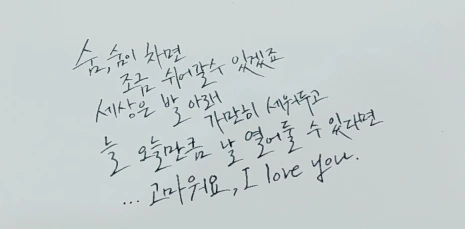 숨, 숨이 차면
조금 쉬어갈수 있겠죠
세상은 발 아래
가만히 세워두고
늘 오늘만큼 날 열어둘 수 있다면
... 고마워요, I love you.